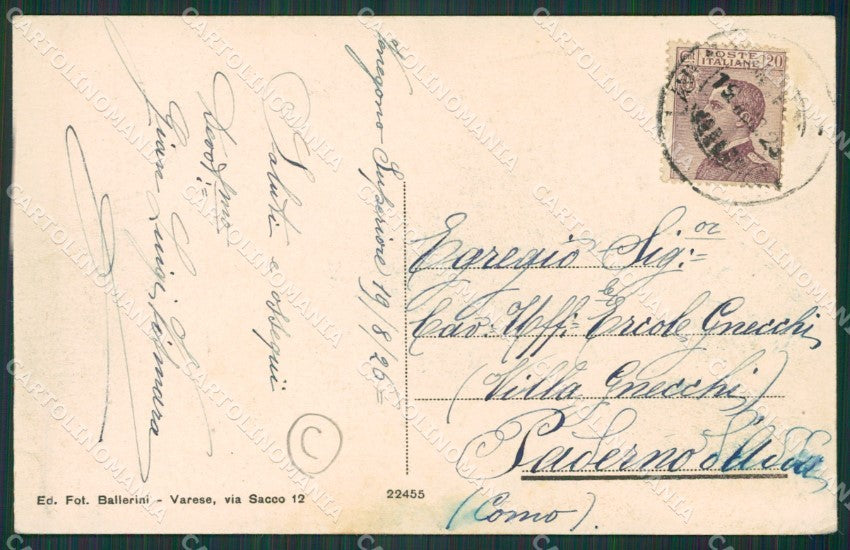 Venegono Superiore 19/8/26=
Saluti e ossequi
Devot.mo
Gian Luigi
POSTE
ITALIANE
20
Egregio Sig:or
Cav: Uff: Ercole Gnecchi
(Villa Gnecchi)
Paderno d'Adda
(Como).
C
Ed. Fot. Ballerini - Varese, via Sacco 12
22455
CARTOLINOMANIA